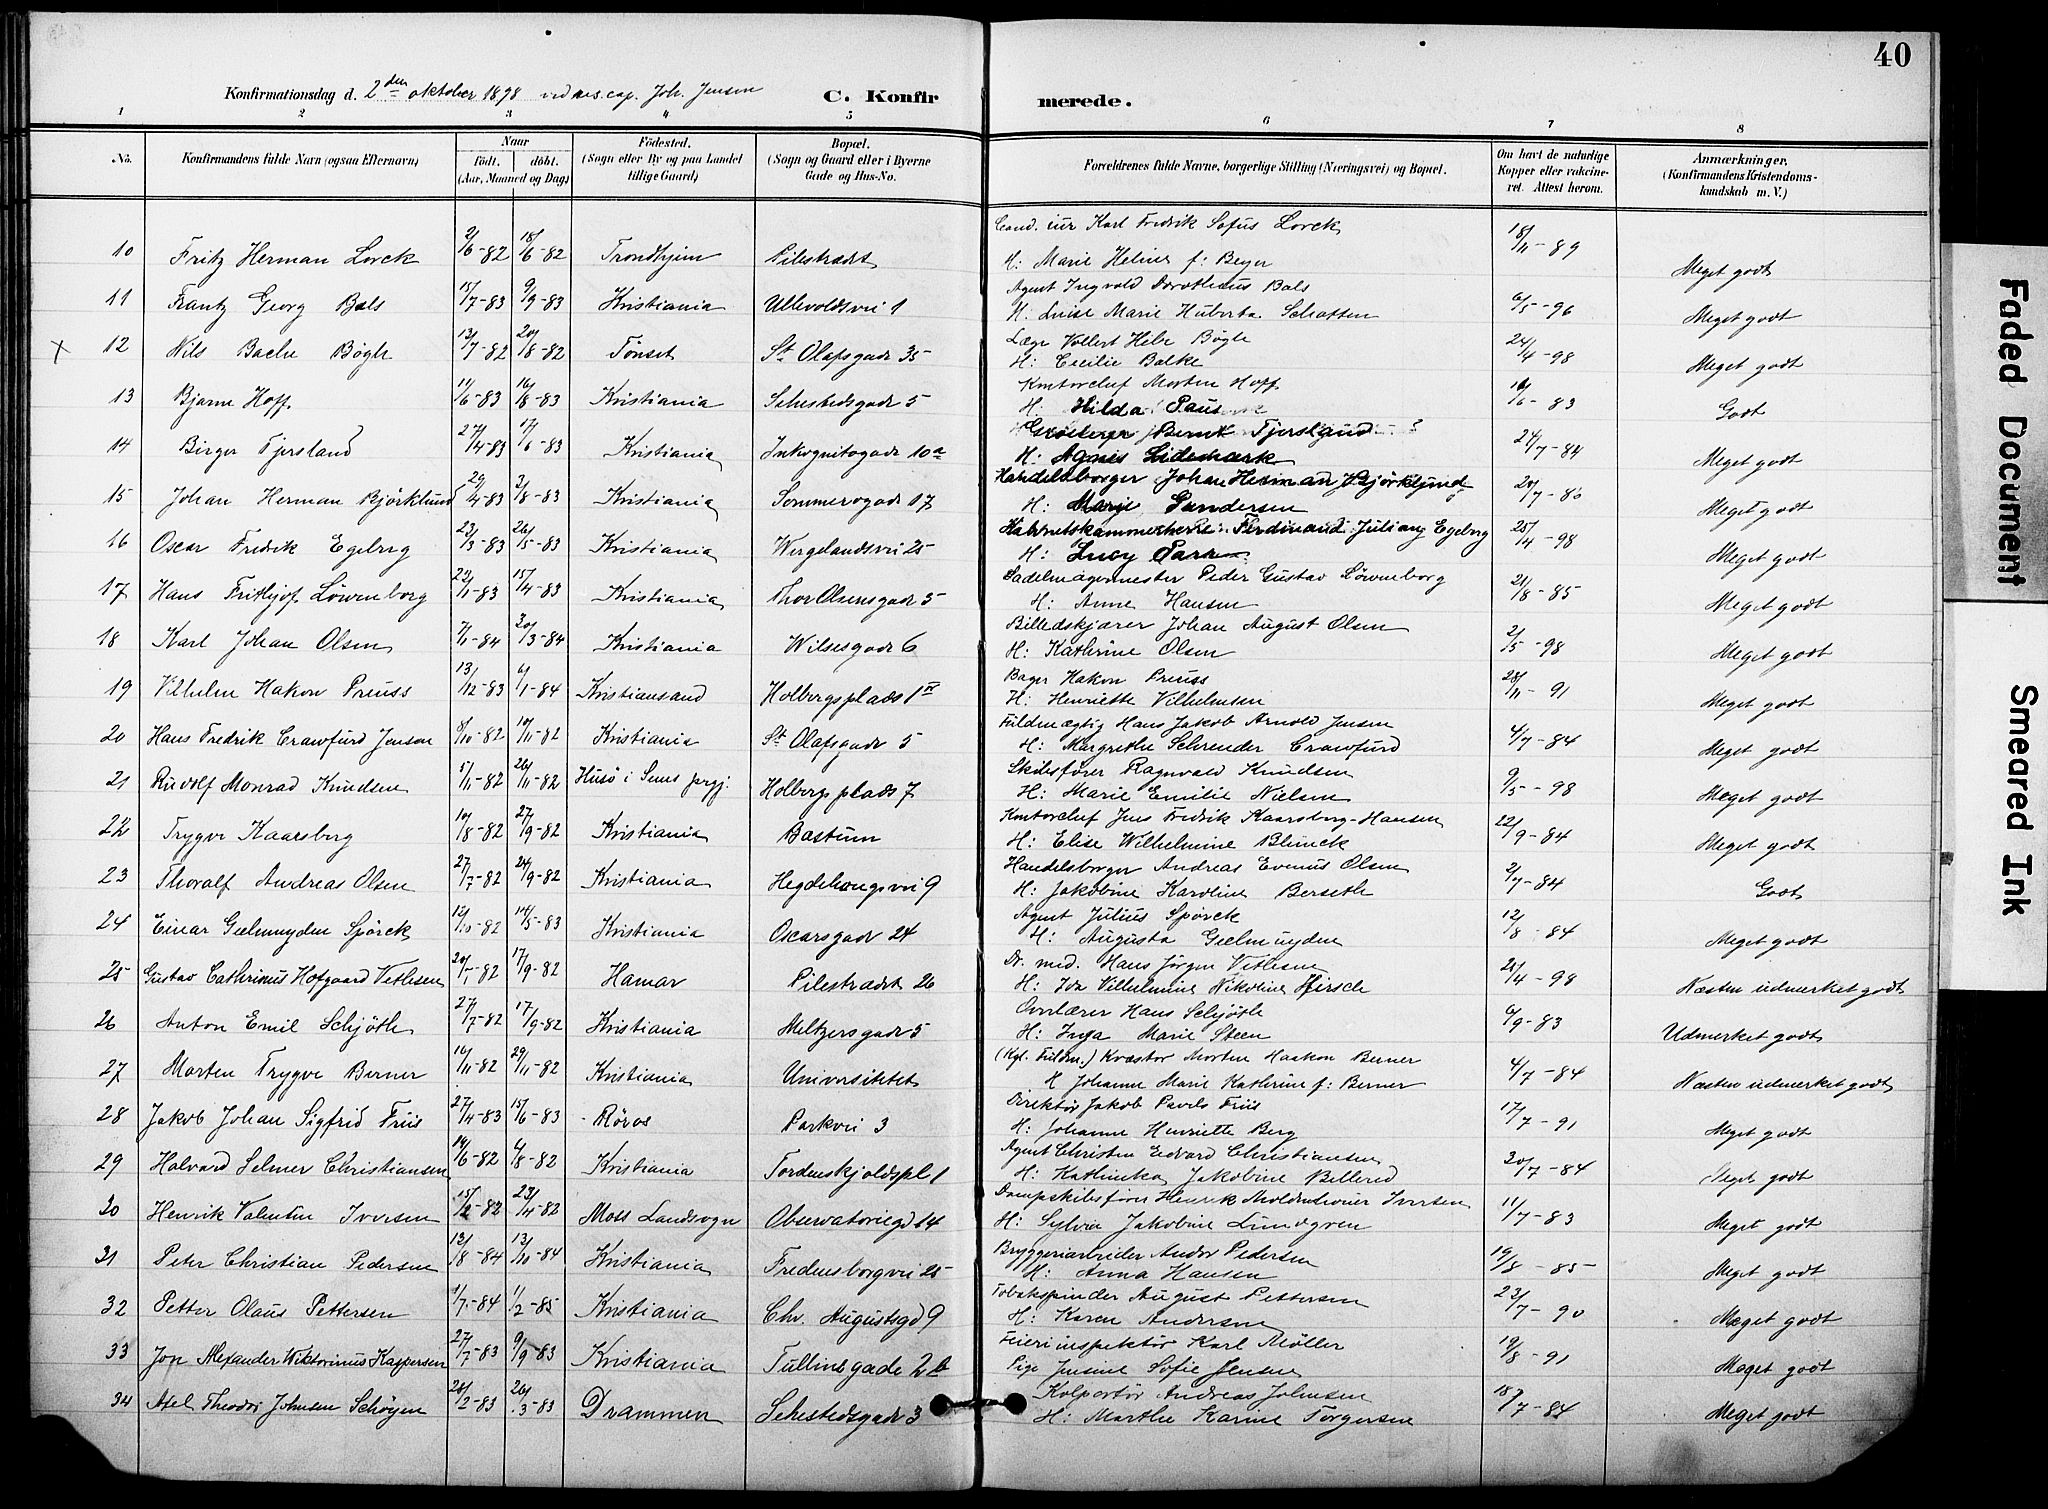 40
Konfirmationsdag d. 2den oktober 1898 ved res. cap. Joh. Jensen C. Konfirmerede.
1 2 3 4 5 6 7 8
No. Konfirmandens fulde Navn (ogsaa Efternavn) Naar födt. döbt. (Aar, Maaned og Dag) Födested. (Sogn eller By og paa Landet tillige Gaard) Bopæl. (Sogn og Gaard eller i Byerne Gade og Hus-No. Forældrenes fulde Navne, borgerlige Stilling (Næringsvei) og Bopæl. Om havt de naturlige Kopper eller vakcineret. Attest herom. Anmærkninger. (Konfirmandens Kristendomskundskab m. V.)
Cand. jur Karl Fredrik Sofus Lorck
10 Fritz Herman Lorck 2/6-82 18/6-82 Trondhjem Pilestrædet H: Marie Heline f: Beyer 18/11-89 Meget godt
Agent Ingvald Dorotheus Bals
11 Frantz Georg Bals 15/7-83 9/9-83 Kristiania Ullevoldsvei 1 H. Luise Marie Huberta Schatten 6/5-96 Meget godt
Læge Vollert Hele Bøgh
X 12 Nils Bache Bøgh 13/7-82 20/8-82 Tønset St Olafsgade 35 H: Cecilie Balke 24/4-98 Meget godt
Kontorchef Morten Hoff
13 Bjarne Hoff 11/6-83 16/8-83 Kristiania Sehestedsgade 5 H: Hilda Paus 16/6-83 Godt
Grosserer Bernt Fjersland
14 Birger Fjersland 27/4-83 17/6-83 Kristiania Inkognitogade 10a H: Agnes Lidemark 24/7-84 Meget godt
Handelsborger Johan Herman Bjørklund
15 Johan Herman Björklund 29/4-83 3/8-83 Kristiania Sommerogade 17 H: Marie Gundersen Meget godt
Kabinetskammerherre Ferdinand Julian Egeberg
16 Oscar Fredrik Egeberg 23/3-83 26/5-83 Kristiania Wergelandsvei 25 H: Lucy Parr 25/4-98 Meget godt
Sadelmagermester Peder Gustav Løwenborg
17 Hans Frithjof Löwenborg 22/1-83 15/4-83 Kristiania Thor Olsensgade 5 H: Anne Hansen 21/8-85 Meget godt
Billedskjærer Johan August Olsen
18 Karl Johan Olsen 7/1-84 30/3-84 Kristiania Wilsesgade 6 H: Kathrine Olsen 2/5-98 Meget godt
Bager Hakon Preuss
19 Vilhelm Hakon Preuss 13/12-83 6/1-84 Kristiansand Holbergsplads 1 IV H: Henriette Vilhelmsen 28/11-91 Meget godt
Fuldmægtig Hans Jakob Arnold Jensen
20 Hans Fredrik Crawfurd Jensen 8/10-82 10/11-82 Kristiania St Olafsgade 5 H: Margrethe Schreuder Crawfurd 4/7-84 Meget godt
Skibsfører Ragnvald Knudsen
21 Rudolf Monrad Knudsen 5/11-82 26/11-82 Husö i Sems prgj. Holbergsplads 7 H: Marie Emilie Nielsen 9/5-98 Meget godt
Kontorchef Jens Fredrik Kaarsberg-Hansen
22 Trygve Kaarsberg 10/8-82 27/9-82 Kristiania Bastum H: Elise Wilhelmine Blunck 22/9-84 Meget godt
Handelsborger Andreas Evenus Olsen
23 Thoralf Andreas Olsen 27/7-82 24/9-82 Kristiania Hegdehougsvei 9 H: Jakobine Karoline Berseth 2/7-84 Godt
Agent Julius Spørck
24 Einar Geelmuyden Spörck 12/10-82 14/5-83 Kristiania Oscarsgade 24 H: Augusta Geelmuyden 12/8-84 Meget godt
Dr. med. Hans Jørgen Vetlesen
25 Gustav Cathrinus Hofgaard Vetlesen 17/9-82 Hamar Pilestrædet 26 H: Ida Vilhelmine Nikoline Hirsch Næsten udmerket godt
Overlærer Hans Schjøth
26 Anton Emil Schjöth 27/7-82 17/9-82 Kristiania Meltzersgade 5 H: Inga Marie Steen 6/9-83 Udmerket godt
(Kgl. Fuldm.) Kvæstor Morten Haakon Berner
27 Morten Trygve Berner 16/11-82 29/11-82 Kristiania Universitetet H Johanne Marie Kathrine f: Berner 4/7-84 Næsten udmerket godt
Direktör Jakob Pavels Friis
28 Jakob Johan Sigfrid Friis 27/4-83 15/6-83 Röros Parkvei 3 H: Johanne Henriette Berg 17/7-91 Meget godt
Agent Christen Edvard Christiansen
29 Halvard Selmer Christiansen 14/6-82 6/8-82 Kristiania Tordenskjoldspl 1 H: Kathinka Jakobine Bellerud 20/7-84 Meget godt
Dampskibsfører Henrik Moldenhauer Iversen
30 Henrik Valentin Iversen 15/2-82 23/4-82 Moss Landsogn Observatoriegd 14 H: Sylvia Jakobine Lundgren 11/7-83 Meget godt
Bryggeriarbeider Andor Pedersen
31 Peter Christian Pedersen 12/8-84 13/10-84 Kristiania Fredensborgvei 25 H: Anna Hansen 19/8-85 Meget godt
Tobakspinder August Pettersen
32 Petter Olaus Pettersen 1/7-84 1/2-85 Kristiania Chr. Augustsgd 9 H: Karen Andersen 23/7-90 Meget godt
Feierinspektör Karl Møller
33 Jon Alexander Wiktorinus Kaspersen 27/7-83 9/9-83 Kristiania Tullinsgade 2b Pige Jensine Sofie Jensen 19/8-91 Meget godt
Kolportör Andreas Johnsen
34 Axel Theodor Johnsen Schöyen 28/2-83 26/3-83 Drammen Sehestedsgade 3 H: Marthe Karine Torgersen 18/7-84 Meget godt
Faded Document
Smeared Ink